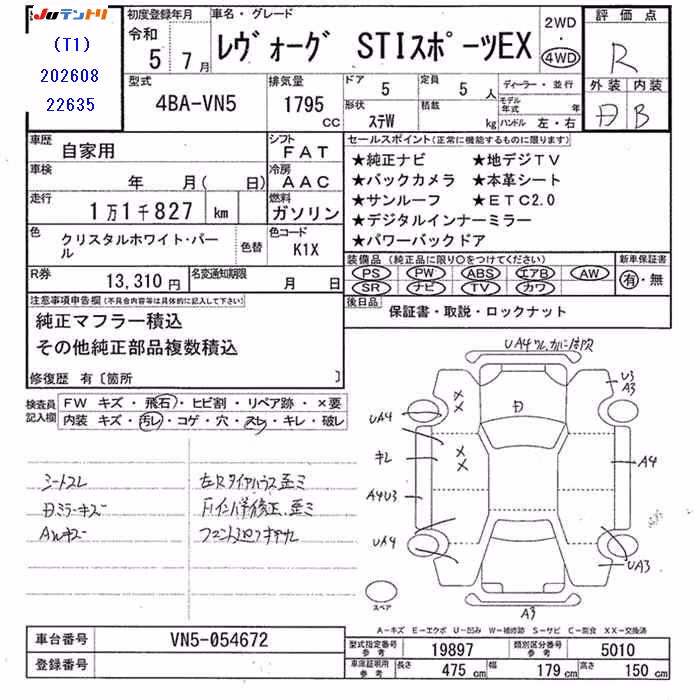 JUテントリ
(T1)
202608
22635
初度登録年月
令和
5 7月
車名・グレード
レヴォーグ STIスポーツEX
2WD
4WD
評価点
R
外装 内装
B
型式
4BA-VN5
排気量
1795
cc
ドア
5
定員
5 人
形状
ステW
積載
kg
ディーラー・並行
モデル年式 年
ハンドル 左・右
車歴
自家用
シフト
FAT
車検
年 月( 日)
冷房
AAC
走行
1万1千827 km
燃料
ガソリン
色
クリスタルホワイト・パール
色替
色コード
K1X
R券
13,310 円
名変通知期限
月 日
セールスポイント(正常に機能するものに限ります)
★純正ナビ ★地デジTV
★バックカメラ ★本革シート
★サンルーフ ★ETC2.0
★デジタルインナーミラー
★パワーバックドア
装備品(純正品に限り○をつけてください)
PS PW ABS エアB AW
SR ナビ TV カワ
新車保証書
有・無
後日品
保証書・取説・ロックナット
注意事項申告欄(不具合内容等は具体的に記入して下さい)
純正マフラー積込
その他純正部品複数積込
修復歴 有〔箇所 〕
検査員記入欄
FW キズ・飛石・ヒビ割・リペア跡・×要
内装 キズ・汚レ・コゲ・穴・スレ・キレ・破レ
シートスレ
ミラーキズ
AWキズ
左Rタイヤハウス歪ミ
UA4
U3
A3
UA4
キレ
A4U3
UA4
A4
UA3
A3
スペア
A-キズ E-エクボ U-凹み W-補修跡 S-サビ C-腐食 XX-交換済
車台番号
VN5-054672
登録番号
型式指定番号
参考
19897
類別区分番号
参考
5010
車庫証明用
参考
長さ
475 cm
幅
179 cm
高さ
150 cm